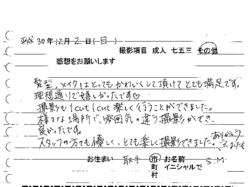 平成30年12月2日(日)
撮影項目 成人 七五三 その他
感想をお願いします
髪型、メイクはとってもかわいくして頂けてとても満足です。
理想通りで嬉しかったです♡
撮影も1cut1cut楽しく行うことができました。
様々な場所で、雰囲気の違う撮影ができ、
良かったです。
スタッフの方も優しく、とても楽しく撮影できました。
ありがとう
ございました
お住まい 取手 市 町 村 お名前 イニシャルで S.M